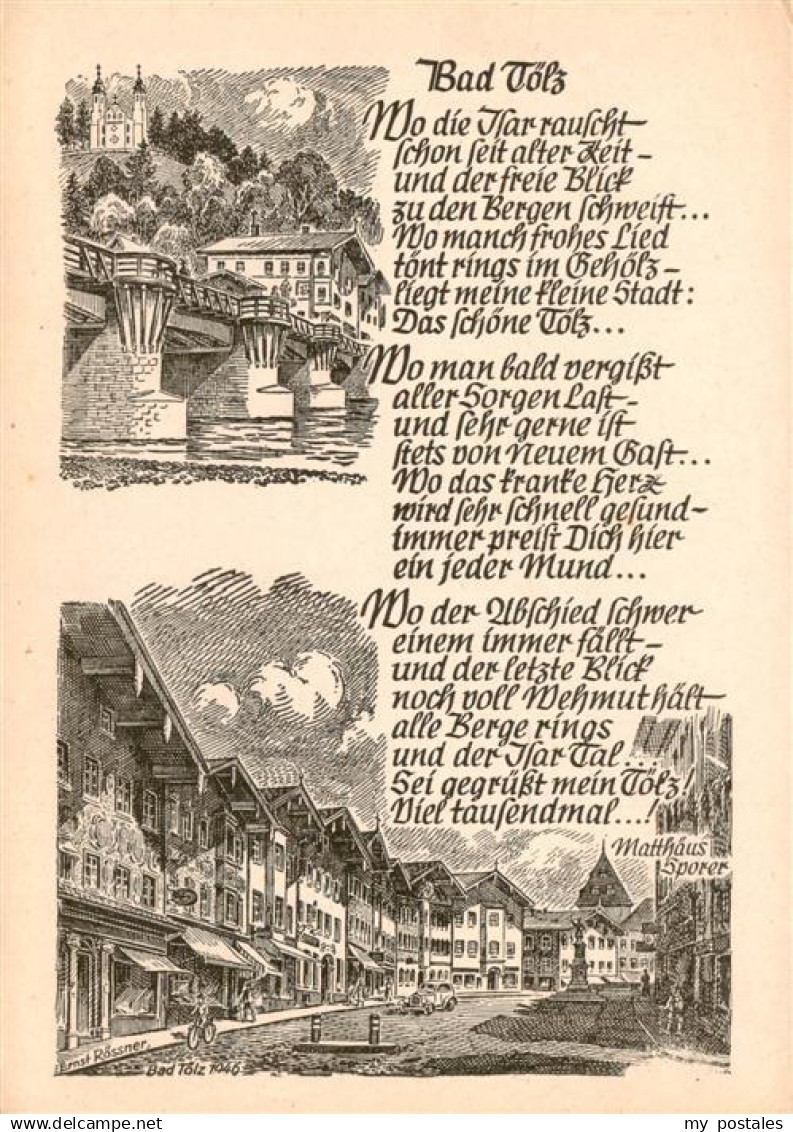 Bad Tölz
Wo die Isar rauscht
schon seit alter Zeit –
und der freie Blick
zu den Bergen schweift...
Wo manch frohes Lied
tönt rings im Gehölz –
liegt meine kleine Stadt:
Das schöne Tölz...
Wo man bald vergißt
aller Sorgen Last –
und sehr gerne ist
stets von Neuem Gast...
Wo das kranke Herz
wird sehr schnell gesund –
immer preist Dich hier
ein jeder Mund...
Wo der Abschied schwer
einem immer fällt –
und der letzte Blick
noch voll Wehmut hält
alle Berge rings
und der Isar Tal...
Sei gegrüßt mein Tölz!
Viel tausendmal...!
Matthäus
Sporer
Ernst Rössner.
Bad Tölz 1946
my postales